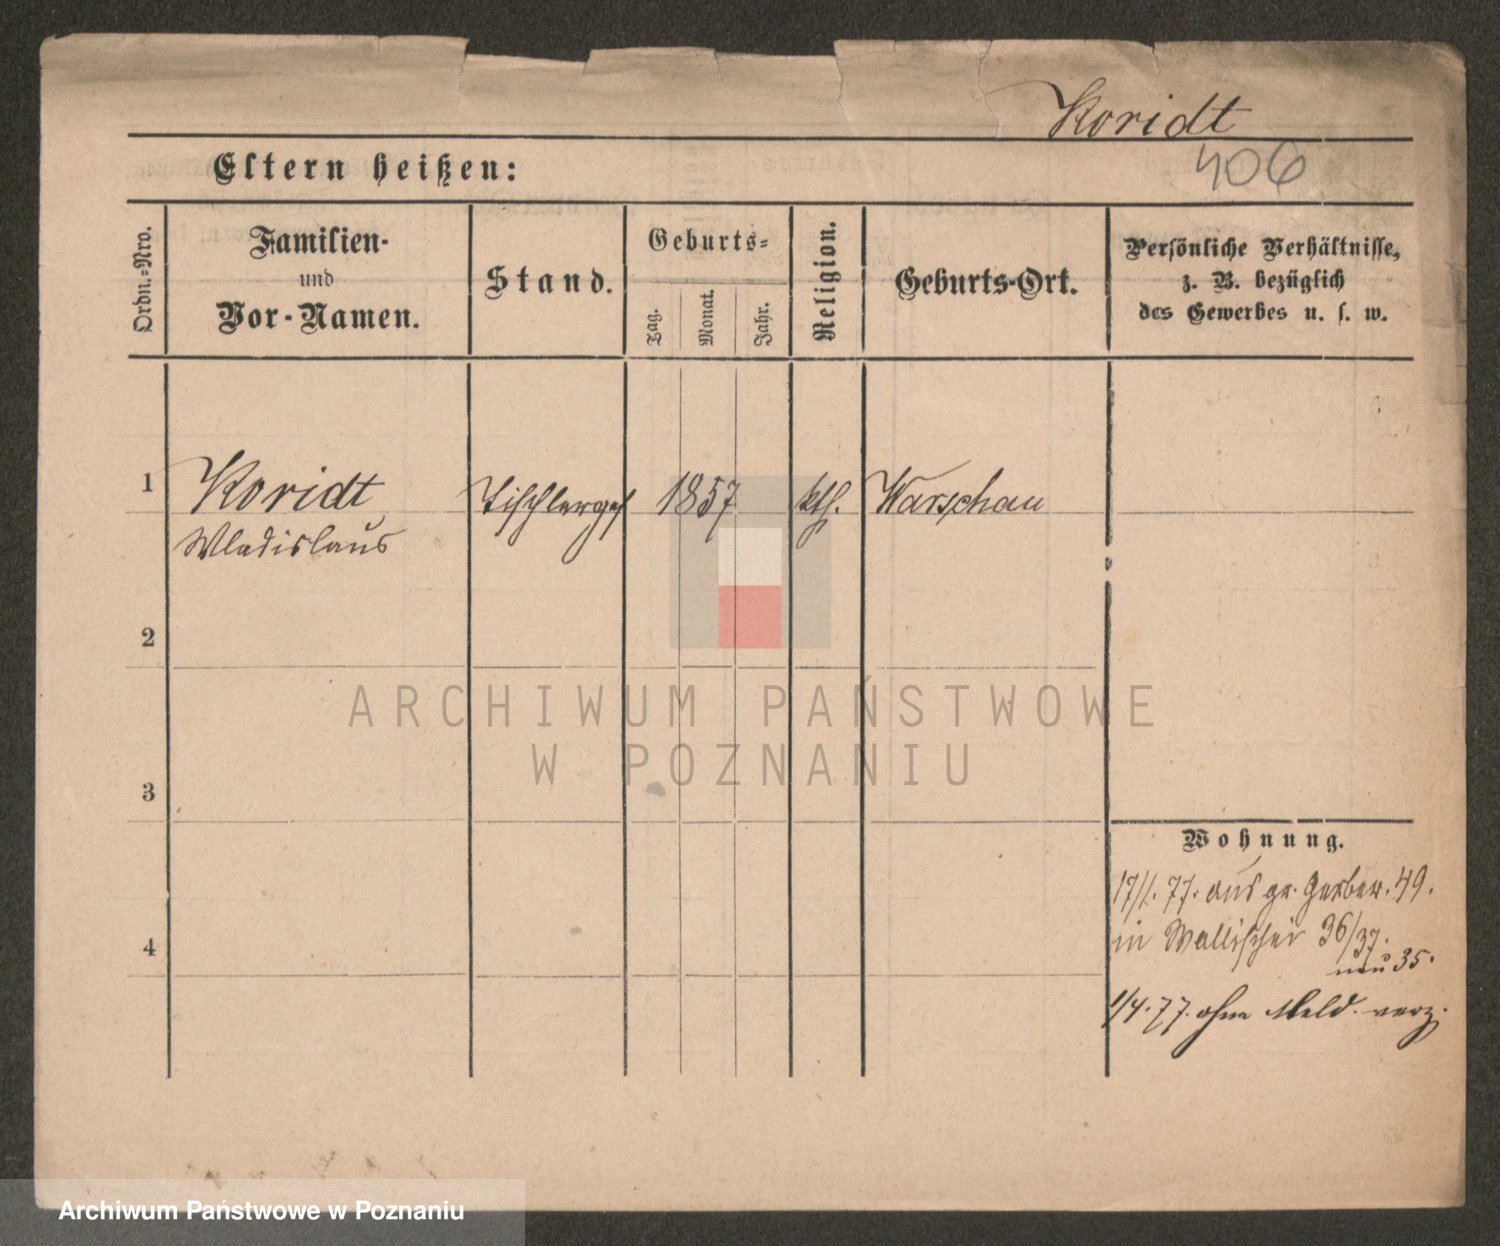 Koridt
406
Eltern heißen:
Ordn.-Nro.
Familien-
und
Vor-Namen.
Stand.
Geburts-
Tag.
Monat.
Jahr.
Religion.
Geburts-Ort.
Persönliche Verhältnisse,
z. B. bezüglich
des Gewerbes u. s. w.
1
Koridt
Wladislaus
Tischlerges
1857
kth.
Warschau
2
3
4
Wohnung.
17/1. 77. aus gr. Gerber. 49.
in Wallischei 36/37.
neu 35.
1/4. 77. ohne Meld. verz.
ARCHIWUM PAŃSTWOWE
W POZNANIU
Archiwum Państwowe w Poznaniu